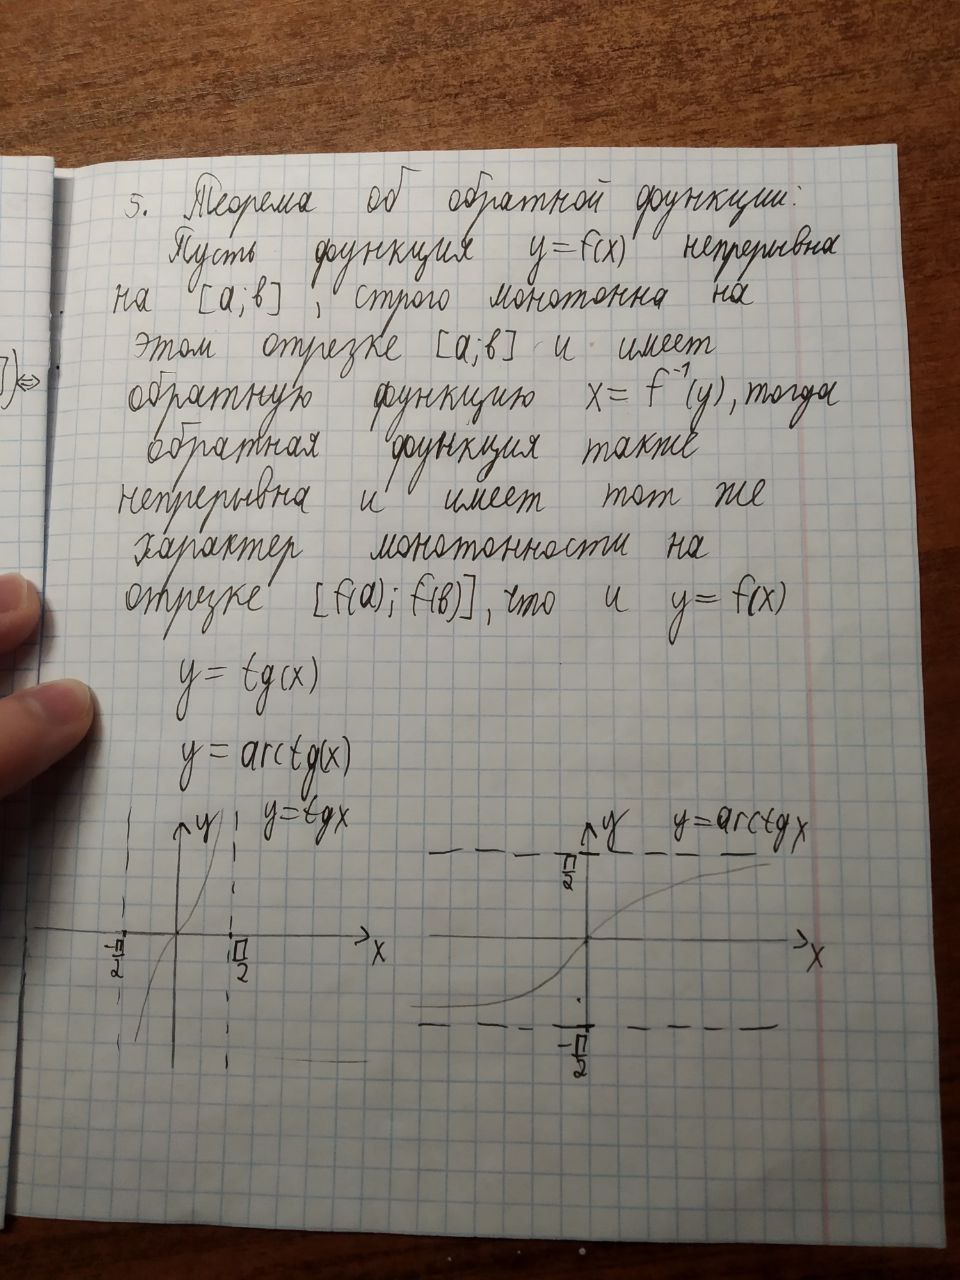 5. Теорема об обратной функции:
Пусть функция y=f(x) непрерывна
на [a;в], строго монотонна на
этом отрезке [a;в] и имеет
обратную функцию x= f⁻¹(y), тогда
обратная функция также
непрерывна и имеет тот же
характер монотонности на
отрезке [f(a); f(в)], что и y= f(x)
y= tg(x)
y= arctg(x)
y y=tgx
-π/2 π/2 x
y y=arctgx
π/2
x
-π/2
])⇔